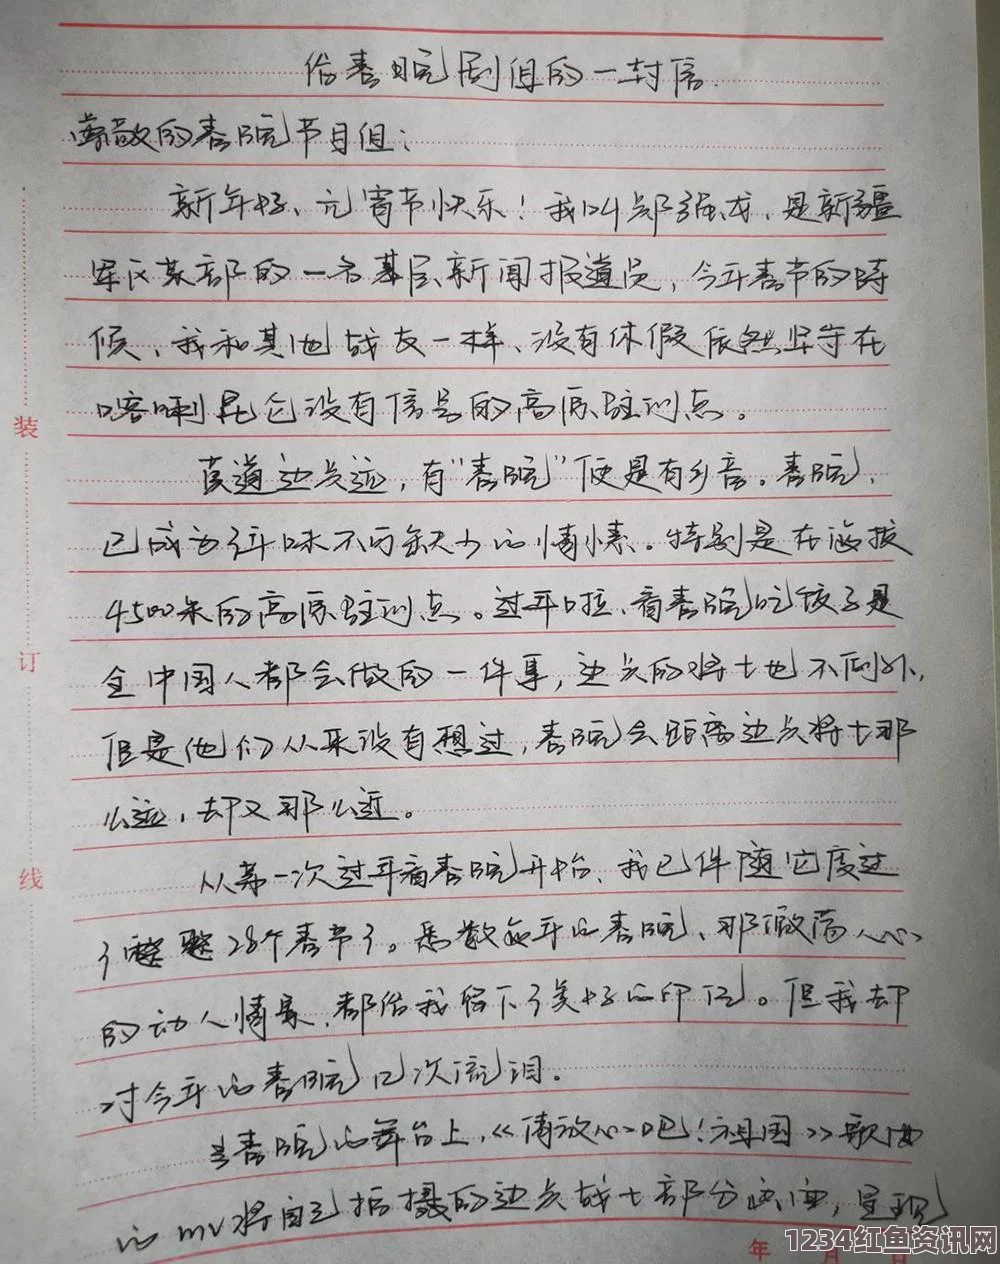 给春晚剧组的一封信
尊敬的春晚节目组：
新年好、元宵节快乐！我叫郭强龙、是新疆
军区某部的一名基层新闻报道员，今年春节的时
候、我和其他战友一样、没有休假依然坚守在
喀喇昆仑没有信号的高原驻训点。
莫道边关远，有“春晚”便是有乡音。春晚、
已成为年味不可缺少的情愫。特别是在海拔
4500米的高原驻训点。过年啦、看春晚吃饺子是
全中国人都会做的一件事，边关的将士也不例外、
但是他们从来没有想过，春晚会距离边关将士那
么远，却又那么近。
从第一次过年看春晚开始、我已伴随它度过
了整整28个春节了。悉数每年的春晚、那激荡人心
的动人情景、都给我留下了美好的印记。但我却
对今年的春晚几次流泪。
当春晚的舞台上，《请放心吧！祖国》歌曲
的mv将自己拍摄的边关战士部分画面，呈现
装
订
线
年 月 日
1234红鱼资讯网